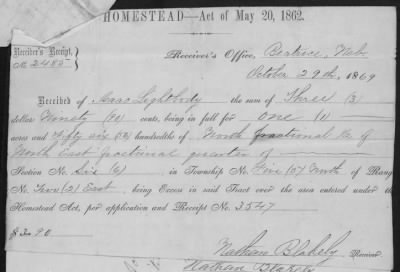 HOMESTEAD—Act of May 20, 1862.
Receiver's Receipt,
No 2485
Receiver's Office, Beatrice, Neb
October 29th, 1869
Received of Isaac Lightbody the sum of Three (3)
dollar Ninety (90) cents, being in full for One (1)
acres and Fifty six (56) hundredths of North fractional ½ of
North East fractional quarter of
Section No. Six (6) in Township No. Five (5) North of Rang
No. Two (2) East, being Excess in said Tract over the area entered under the
Homestead Act, per application and Receipt No. 3547
$3 90
Nathan Blakely Receiver.
Nathan Blakely